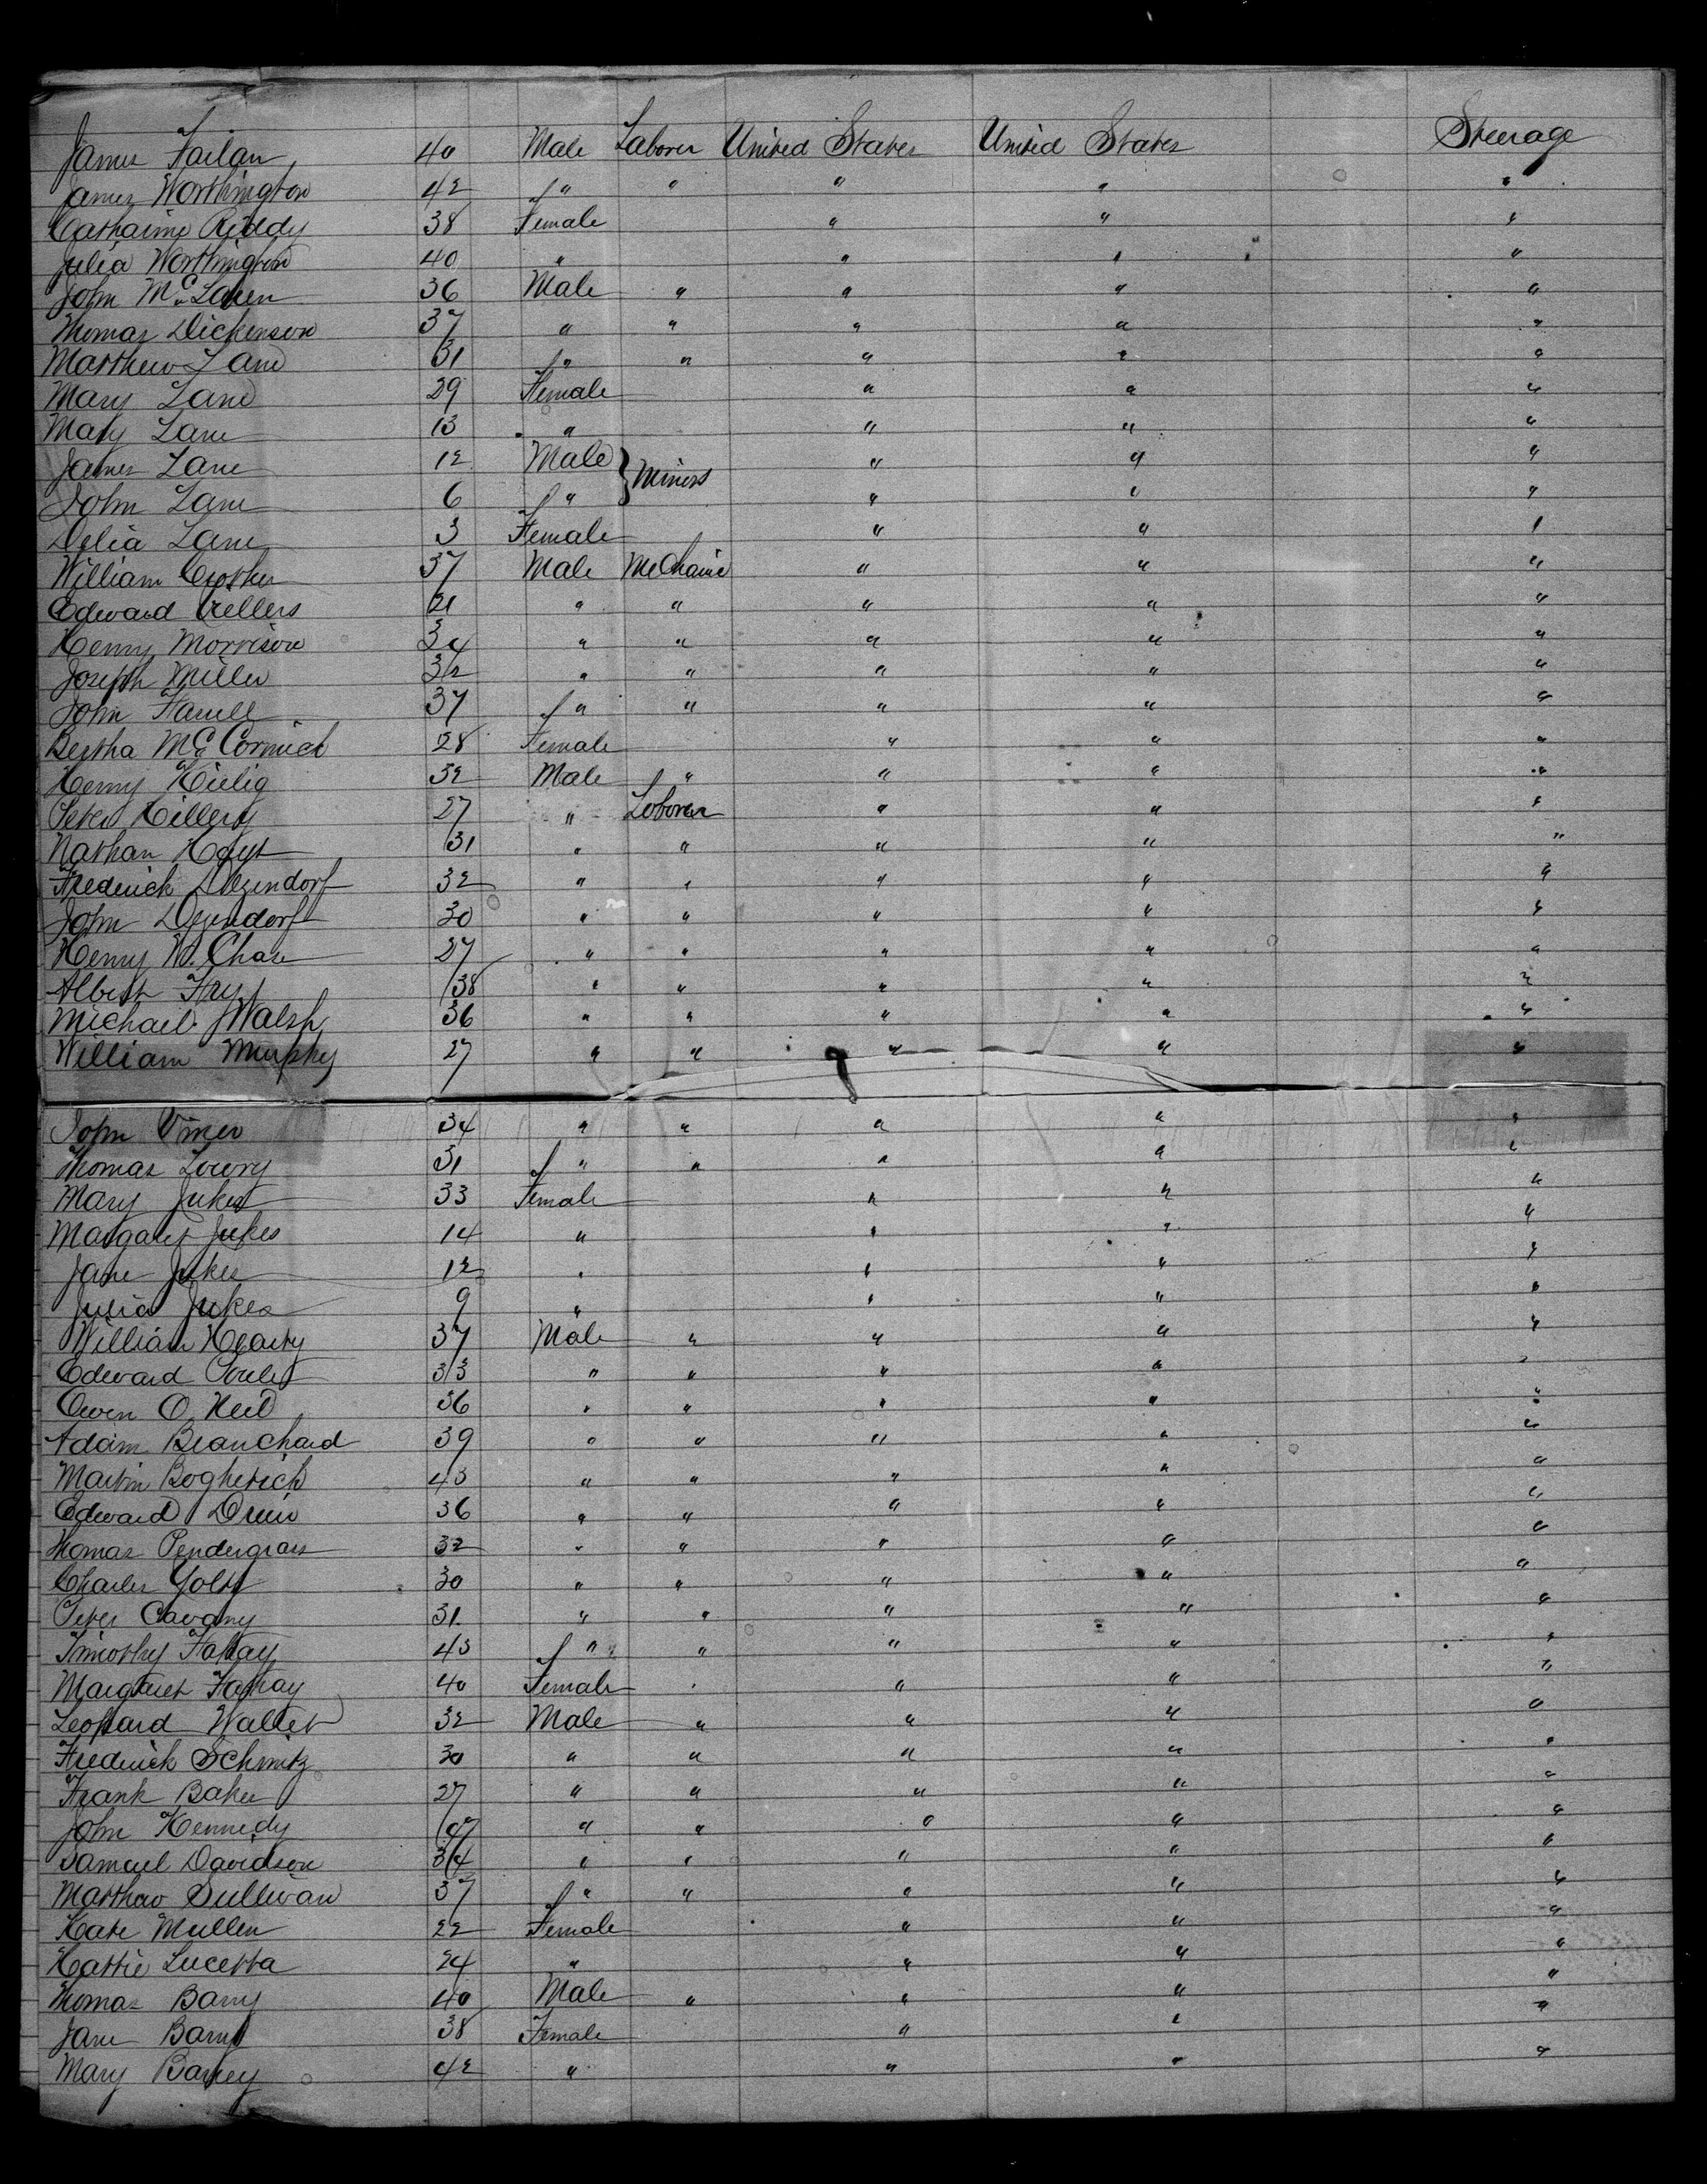 James Failan 40 Male Laborer United States United States Steerage
James Worthington 42 " " " " "
Catharine Reddy 38 Female " " "
Julia Worthington 40 " " " "
John McLaren 36 Male " " " "
Thomas Dickenson 37 " " " " "
Matthew Lane 31 " " " " "
Mary Lane 29 Female " " "
Mary Lane 13 " " " "
James Lane 12 Male } Minors " " "
John Lane 6 " " " "
Delia Lane 3 Female " " "
William 37 Male Mechanic " " "
Edward 21 " " " " "
Henry Morrison 34 " " " " "
Joseph Miller 32 " " " " "
John Farrell 37 " " " " "
Bertha McCormick 28 Female " " "
Henry Kielig 32 Male " " " "
Peter Hillery 27 " Loborer " " "
Nathan Hoyt 31 " " " " "
Frederick Degendorf 32 " " " " "
John Degendorf 30 " " " " "
Henry W. Chase 27 " " " " "
Albert Fry 38 " " " " "
Michael Walsh 36 " " " " "
William Murphy 27 " " " " "
John 34 " " " " "
Thomas Lowry 31 " " " " "
Mary Jukes 33 Female " " "
Margaret Jukes 14 " " " "
Jane Jukes 12 " " " "
Julia Jukes 9 " " " "
William Hearty 37 Male " " " "
Edward 33 " " " " "
Owen O Neil 36 " " " " "
Adam Beanchard 39 " " " " "
Martin Boghetich 43 " " " " "
Edward 36 " " " " "
Thomas Pendergrass 32 " " " " "
Charles 30 " " " " "
Peter Cavany 31 " " " " "
Timothy Fahay 43 " " " " "
Margaret Fahay 40 Female " " "
Leopard Walter 32 Male " " " "
Frederick Schmitz 30 " " " " "
Frank Baker 27 " " " " "
John Kennedy " " " " "
Samuel Davidson 34 " " " " "
Matthew Sullivan 37 " " " " "
Kate Mullen 22 Female " " "
Hattie Lucetta 24 " " " "
Thomas Barry 40 Male " " " "
Jane Barry 38 Female " " "
Mary Barrey 42 " " " "